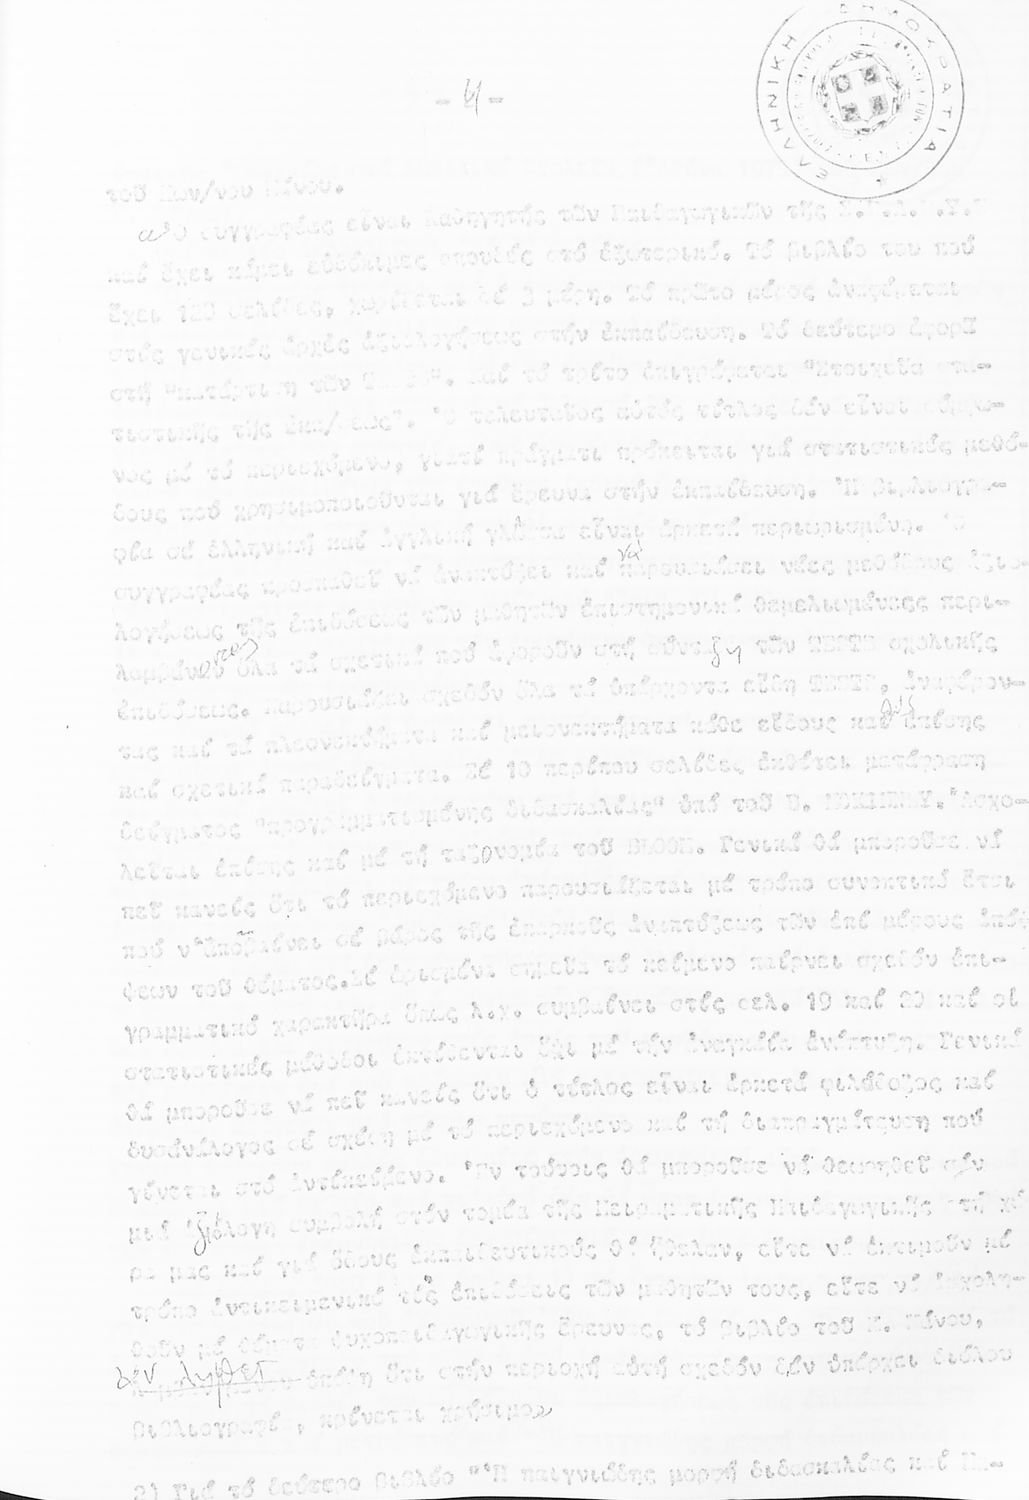 ΕΛΛΗΝΙΚΗ ΔΗΜΟΚΡΑΤΙΑ
- 4 -
τοῦ Κων/νου Μίνου.
α) Ὁ συγγραφέας εἶναι Καθηγητής τῶν Παιδαγωγικῶν τῆς
καί ἔχει κάμει εὐδόκιμες σπουδές στό ἐξωτερικό. Τό βιβλίο του πού
ἔχει σελίδες, χωρίζεται σέ 3 μέρη. Τό πρῶτο μέρος ἀναφέρεται
στίς γενικές ἀρχές ἀξιολογήσεως στήν ἐκπαίδευση. Τό δεύτερο ἀφορᾶ
στή "κατάρτιση τῶν καί τό τρίτο ἐπιγράφεται "Στοιχεῖα στα-
τιστικῆς τῆς ἐκπ/σεως". Ὁ τελευταῖος αὐτός τίτλος δέν εἶναι σύμφω-
νος μέ τό περιεχόμενο, γιατί πράγματι πρόκειται γιά στατιστικές μεθό-
δους πού χρησιμοποιοῦνται γιά ἔρευνα στήν ἐκπαίδευση. Ἡ βιβλιογρα-
φία σέ ἑλληνική καί ἀγγλική γλῶσσα εἶναι ἀρκετά περιορισμένη. Ὁ
συγγραφέας προσπαθεῖ νά ἀναπτύξει καί νά παρουσιάσει νέες μεθόδους ἀξιο-
λογήσεως τῆς ἐπιδόσεως τῶν μαθητῶν ἐπιστημονικά θεμελιωμένες περι-
λαμβάνοντας ὅλα τά σχετικά πού ἀφοροῦν στή σύνταξη τῶν ΤΕΣΤΣ σχολικῆς
ἐπιδόσεως. Παρουσιάζει σχεδόν ὅλα τά ὑπάρχοντα εἴδη ΤΕΣΤΣ, ἀναφέρον-
τας καί τά πλεονεκτήματα καί μειονεκτήματα κάθε εἴδους καθώς ἐπίσης
καί σχετικά παραδείγματα. Σέ 10 περίπου σελίδες ἐκθέτει μετάφραση
δείγματος "προγραμματισμένης διδασκαλίας" ὑπό τοῦ Ἀσχο-
λεῖται ἐπίσης καί μέ τή ταξονομία τοῦ BLOOM. Γενικά θά μποροῦσε νά
πεῖ κανείς ὅτι τό περιεχόμενο παρουσιάζεται μέ τρόπο συνοπτικό ἔτσι
πού ν' ἀποβαίνει σέ βάρος τῆς ἐπαρκοῦς ἀναπτύξεως τῶν ἐπί μέρους ἀπό-
ψεων τοῦ θέματος. Σέ ὁρισμένα σημεῖα τό κείμενο παίρνει σχεδόν ἐπι-
γραμματικό χαρακτῆρα ὅπως λ.χ. συμβαίνει στίς σελ. 19 καί 20 καί οἱ
στατιστικές μέθοδοι ἐκτίθενται ὄχι μέ τήν ἀναγκαία ἀνάπτυξη. Γενικά
θά μποροῦσε νά πεῖ κανείς ὅτι ὁ τίτλος εἶναι ἀρκετά φιλόδοξος καί
δυσανάλογος σέ σχέση μέ τό περιεχόμενο καί τή διαπραγμάτευση πού
γίνεται στό ἀντικείμενο. Ἐν τούτοις θά μποροῦσε νά θεωρηθεῖ σάν
μιά ἀξιόλογη συμβολή στόν τομέα τῆς Πειραματικῆς Παιδαγωγικῆς στή χώ-
ρα μας καί γιά ὅσους ἐκπαιδευτικούς θά ἤθελαν, εἴτε νά ἐκτιμοῦν μέ
τρόπο ἀντικειμενικό τίς ἐπιδόσεις τῶν μαθητῶν τους, εἴτε νά ἀσχολη-
θοῦν μέ θέματα ψυχοπαιδαγωγικῆς ἔρευνας, τό βιβλίο τοῦ Κ. Μίνου,
ἐάν ληφθεῖ ὑπόψη ὅτι στήν περιοχή αὐτή σχεδόν δέν ὑπάρχει διόλου
βιβλιογραφία, κρίνεται χρήσιμο»
2) Γιά τό δεύτερο βιβλίο "Ἡ παιγνιώδης μορφή διδασκαλίας καί Πα-